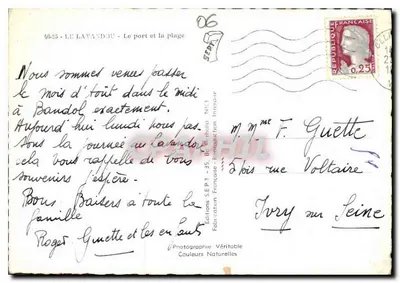 5625 - LE LAVANDOU - Le port et la plage
06
SEPT
RÉPUBLIQUE FRANÇAISE
0,25
Nous sommes venus passer
le mois d'août dans le midi
à Bandol exactement.
Aujourd'hui lundi nous pas
sons la journée au Lavandou
cela vous rappelle de vous
souvenirs j'espère.
Bons Baisers à toute la
famille
Roger Ginette et les enfants
Editions SEPT
Photographie Véritable
Couleurs Naturelles
M. Mme F. Guette
5 bis rue Voltaire
Ivry sur Seine